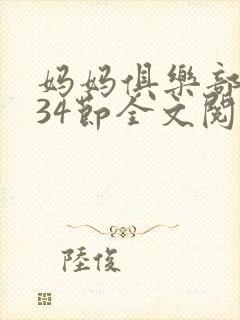 妈妈俱樂部
34節全文閱
陸俊